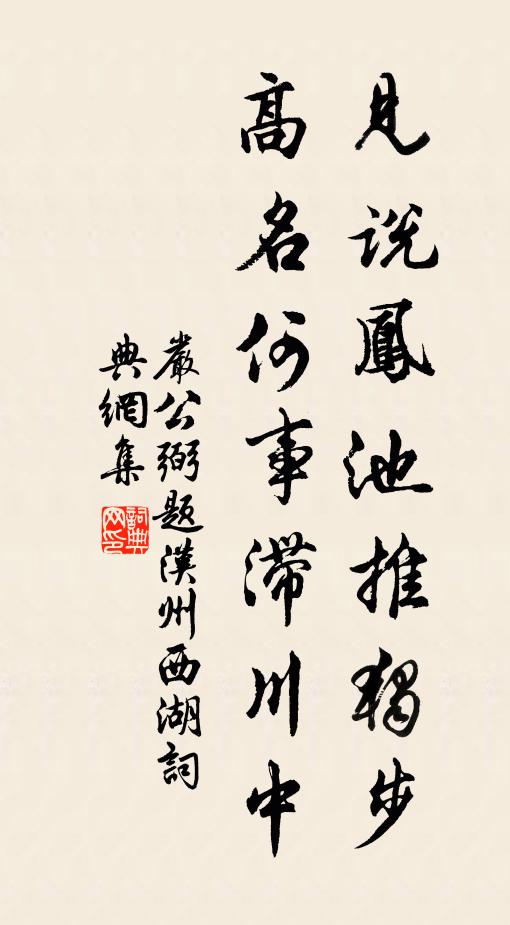 見說鳳池推獨步
高名何事滯川中
嚴公弼題漢州西湖詞
典網集
詞典網印